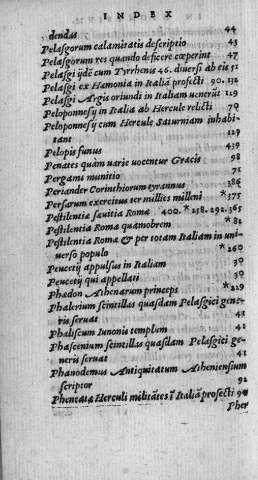 INDEX
dendas 44
Pelasgorum calamitatis descriptio 43
Pelasgorum res quando deficere cœperint 47
Pelasgi ijdē cum Tyrrhenis 46. diuersi ab eis 51
Pelasgi ex Hæmonia in Italiā profecti 90. 112
Pelasgi Argis oriundi in Italiam uenerūt 119
Peloponnesij in Italia ab Hercule relicti 70
Peloponnesij cum Hercule Saturniam inhabi-
tant 129
Pelopis funus 439
Penates quàm uariè uocentur Græcis 98
Pergami munitio 71
Periander Corinthiorum tyrannus 386
Persarum exercitus ter millies milleni *375
Pestilentia sæuitia Romæ 400.*258.292.365
Pestilentia Romæ quamobrem *82
Pestilentia Romæ & per totam Italiam in uni-
uerso populo *260
Peucetij appulsus in Italiam 30
Peucetij qui appellati 30
Phædon Athenarum princeps *219
Phalerium scintillas quasdam Pelasgici gene-
ris seruat 41
Phaliscum Iunonis templum 41
Phascenium scintillas quasdam Pelasgici ge-
neris seruat 41
Phanodemus Antiquitatum Atheniensium
scriptor 92
Pheneatæ Herculi militātes ī Italiā profecti 90
Pher